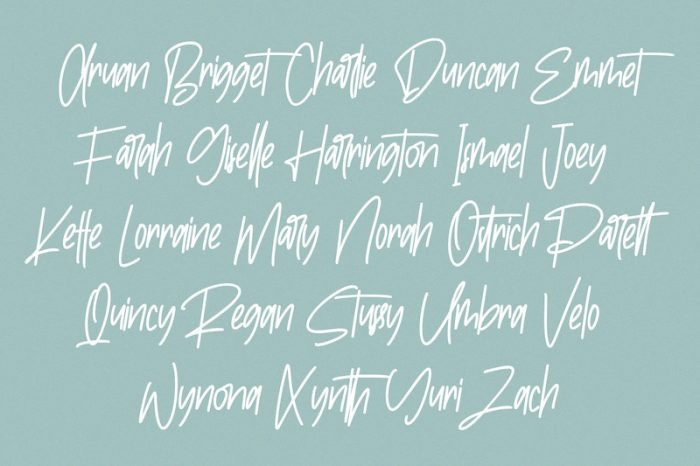 Aruan Brigget Charlie Duncan Emmet
Farah Giselle Harrington Ismael Joey
Kette Lorraine Mary Norah Ostrich Parett
Quincy Regan Stussy Umbra Velo
Wynona Xynth Yuri Zach